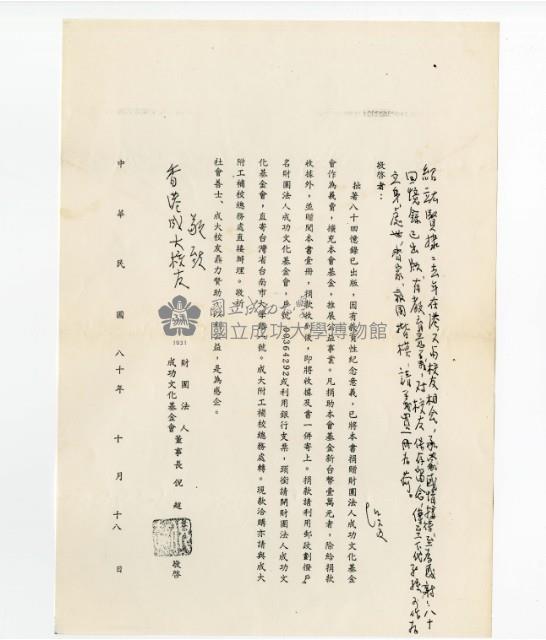 紹誌賢棣：去年在港又與校友相会，承蒙盛情接待至為感謝，八十
回憶錄已出版，有教育意義，对校友保存留念
立身處世，齊家報國楷模，請義買一冊为荷。
倪超
敬啓者：
拙著八十回憶錄已出版，因有教育性紀念意義，已將本書捐贈財團法人成功文化基金
會作為義賣，擴充本會基金，推展公益事業。凡捐助本會基金新台幣壹萬元者，除給捐款
收據外，並贈閱本書壹冊，捐款收到後，即將收據及書一併寄上。捐款請利用郵政劃撥戶
名財團法人成功文化基金會，戶號：00364292或利用銀行支票，頭銜請開財團法人成功文
化基金會，直寄台灣省台南市大學路 號。成大附工補校總務處轉。現款洽購亦請與成大
附工補校總務處直接辦理。敬祈
社會善士、成大校友鼎力贊助 公益，是為感企。
敬致
香港成大校友
財團法人
成功文化基金會
董事長 倪超 敬啓
中華民國八十年十月十八日
國立成功大學博物館
1931